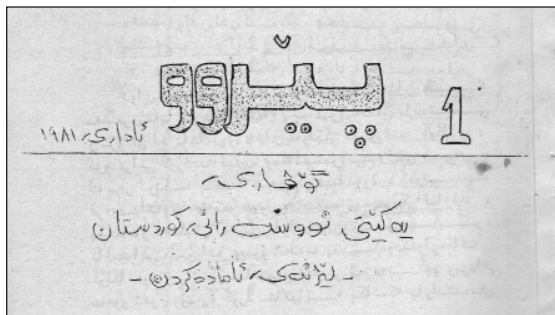 پێڕوو
1
ئاداری ١٩٨١
گۆڤاری
یەکێتی نووسەرانی کوردستان
- لیژنەی ئامادەکردن -